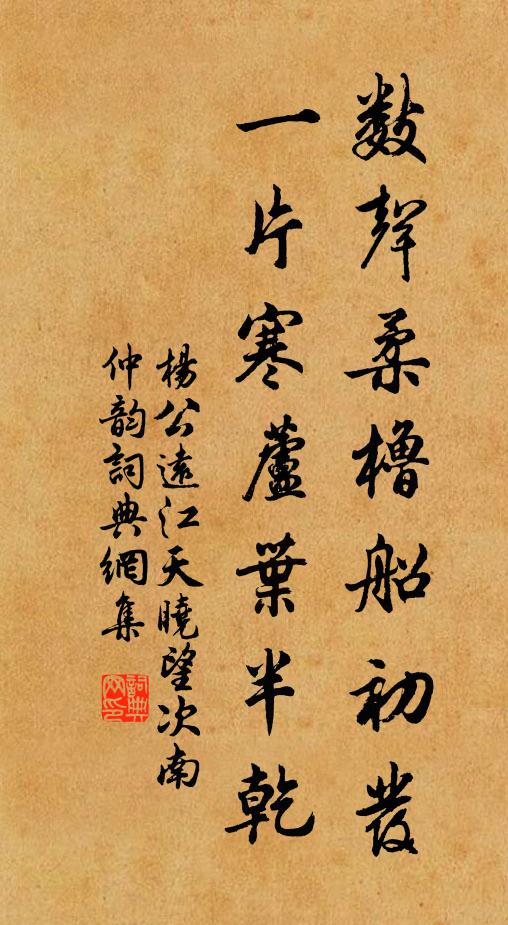 數聲柔櫓船初發
一片寒蘆葉半乾
楊公遠江天曉望次南
仲韵詞典網集
詞典网印